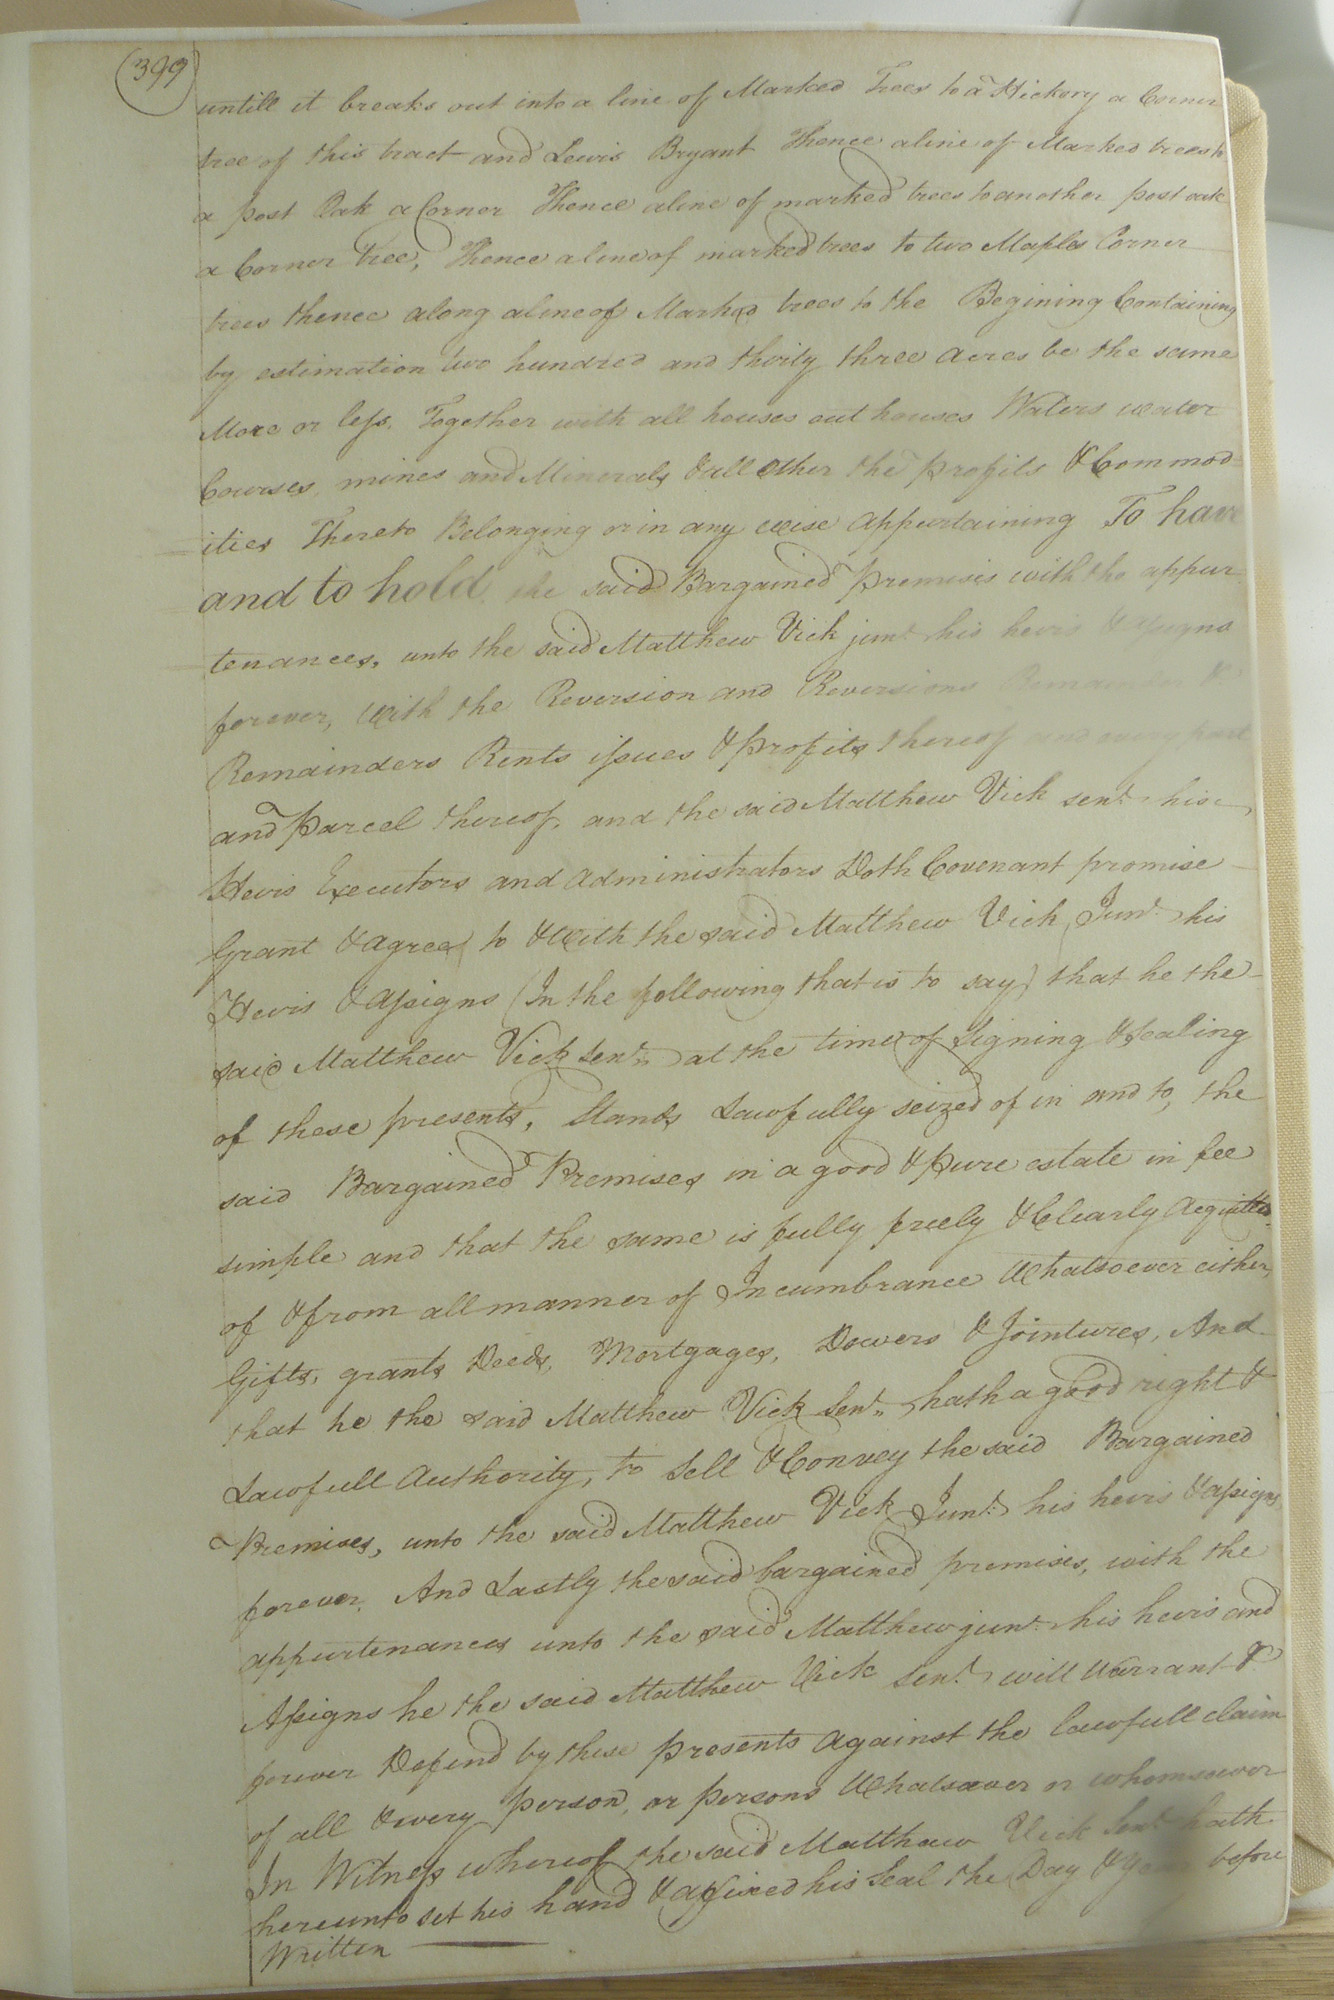 (399)
untill it breaks out into a line of Marked Trees to a Hickory a Corner
tree of this tract and Lewis Bryant Thence a line of Marked trees to
a post Oak a Corner Thence a line of marked trees to another post oak
a Corner tree, Thence a line of marked trees to two Maples Corner
trees thence along a line of Marked trees to the Begining Containing
by estimation two hundred and thirty three acres be the same
More or less. Together with all houses out houses Waters water
Courses, mines and Minerals & all other the profits & Commod-
ities Thereto Belonging or in any wise appurtaining To have
and to hold the said Bargained Premises with the appur
tenances, unto the said Matthew Vick junr. his heirs & assigns
forever, with the Reversion and Reversions Remainder &
Remainders Rents issues & profits thereof and every part
and Parcel thereof. and the said Matthew Vick senr. his
Heirs Executors and administrators Doth Covenant promise
Grant & agree to & with the said Matthew Vick Junr. his
Heirs & assigns (In the following that is to say) that he the
said Matthew Vick Senr. at the time of Signing & Sealing
of these presents, Stands Lawfully seized of in and to, the
said Bargained Premises in a good & Pure estate in fee
simple and that the same is fully freely & Clearly Acquitted
of & from all manner of Incumbrance Whatsoever either
Gifts, grants Deeds, Mortgages, Dowers & Jointures, And
that he the said Matthew Vick Senr. hath a good right &
Lawfull Authority, to Sell & Convey the said Bargained
Premises, unto the said Matthew Vick Junr. his heirs & assigns
forever. And Lastly the said bargained premises, with the
appurtenances unto the said Matthew junr. his heirs and
Assigns he the said Matthew Vick senr. will Warrant &
forever Defend by these presents against the lawfull claim
of all & every person, or persons Whatsoever or whomsoever
In Witness whereof the said Matthew Vick Senr. hath
hereunto set his hand & affixed his Seal the Day & Year before
Written